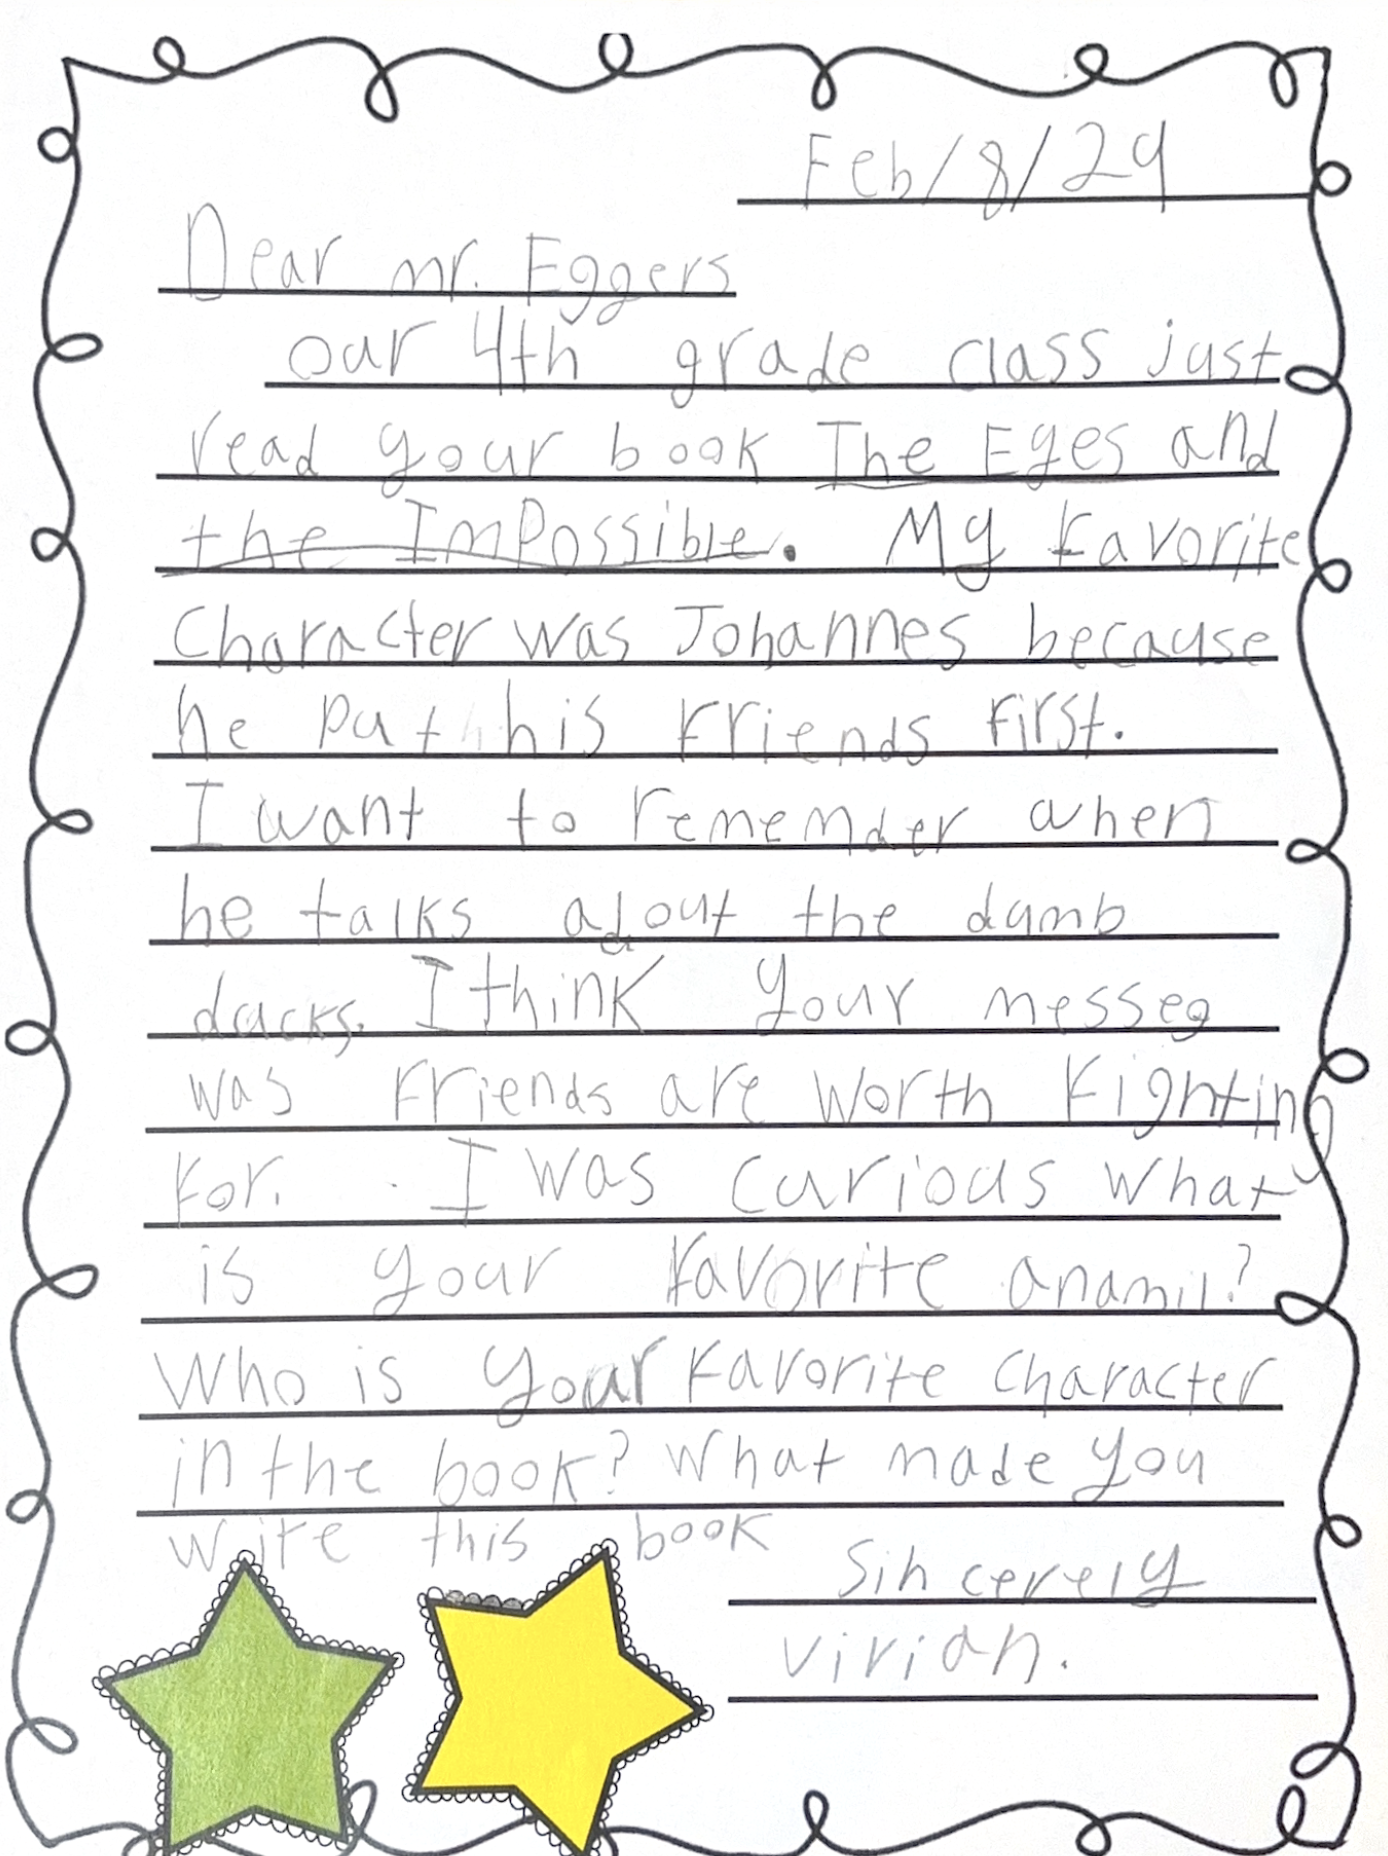 Feb/8/24
Dear mr. Eggers
our 4th grade class just
read your book The Eyes and
the ImPossible. My Favorite
Character was Johannes because
he put his Friends First.
I want to rememder when
he talks adout the dumb
ducks. I think your messeg
was Friends are worth Fighting
For. I was curious what
is your Favorite anamil?
Who is your Favorite character
in the book? What made you
write this book
Sincerely
Virian.